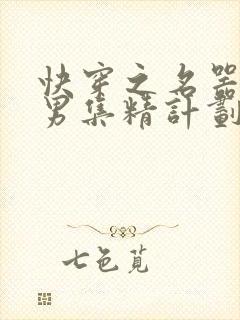 快穿之名器
男集精計劃
七色莧